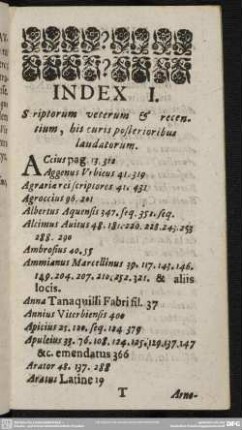 INDEX I.
Scriptorum veterum & recen-
tium, his curis posterioribus
laudatorum.
ACcius pag. 13. 310
Aggenus Vrbicus 41. 319
Agrariæ rei scriptores 41. 431
Agroecius 96. 201
Albertus Aquensis 347. seq. 351. seq.
Alcimus Auitus 48. 181. 220. 228. 243. 253
288. 290
Ambrosius 40. 55
Ammianus Marcellinus 39. 117. 143. 146.
149. 204. 207. 210. 252. 321. & aliis
locis.
Anna Tanaquilli Fabri fil. 37
Annius Viterbiensis 400
Apicius 25. 120. seq. 124. 379
Apuleius 33. 76. 108. 124. 125. 129. 137. 147
&c. emendatus 366
Arator 48. 137. 288
Aratus Latine 19
T Arne-